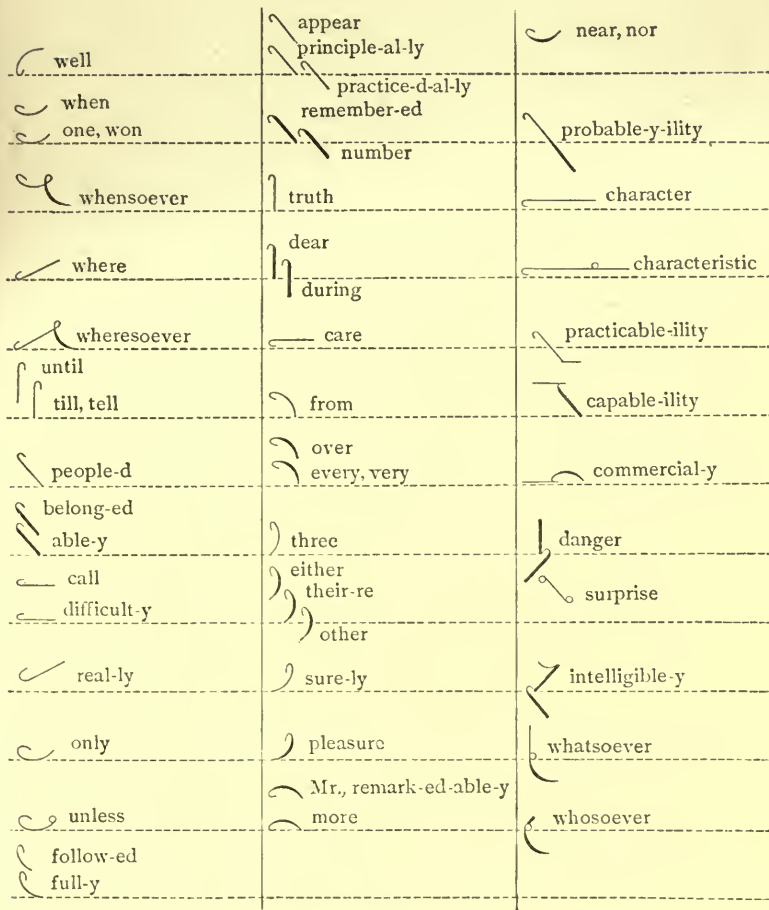 well
when
one, won
whensoever
where
wheresoever
until
till, tell
people-d
belong-ed
able-y
call
difficult-y
real-ly
only
unless
follow-ed
full-y
appear
principle-al-ly
practice-d-al-ly
remember-ed
number
truth
dear
during
care
from
over
every, very
three
either
their-re
other
sure-ly
pleasure
Mr., remark-ed-able-y
more
near, nor
probable-y-ility
character
characteristic
practicable-ility
capable-ility
commercial-y
danger
surprise
intelligible-y
whatsoever
whosoever